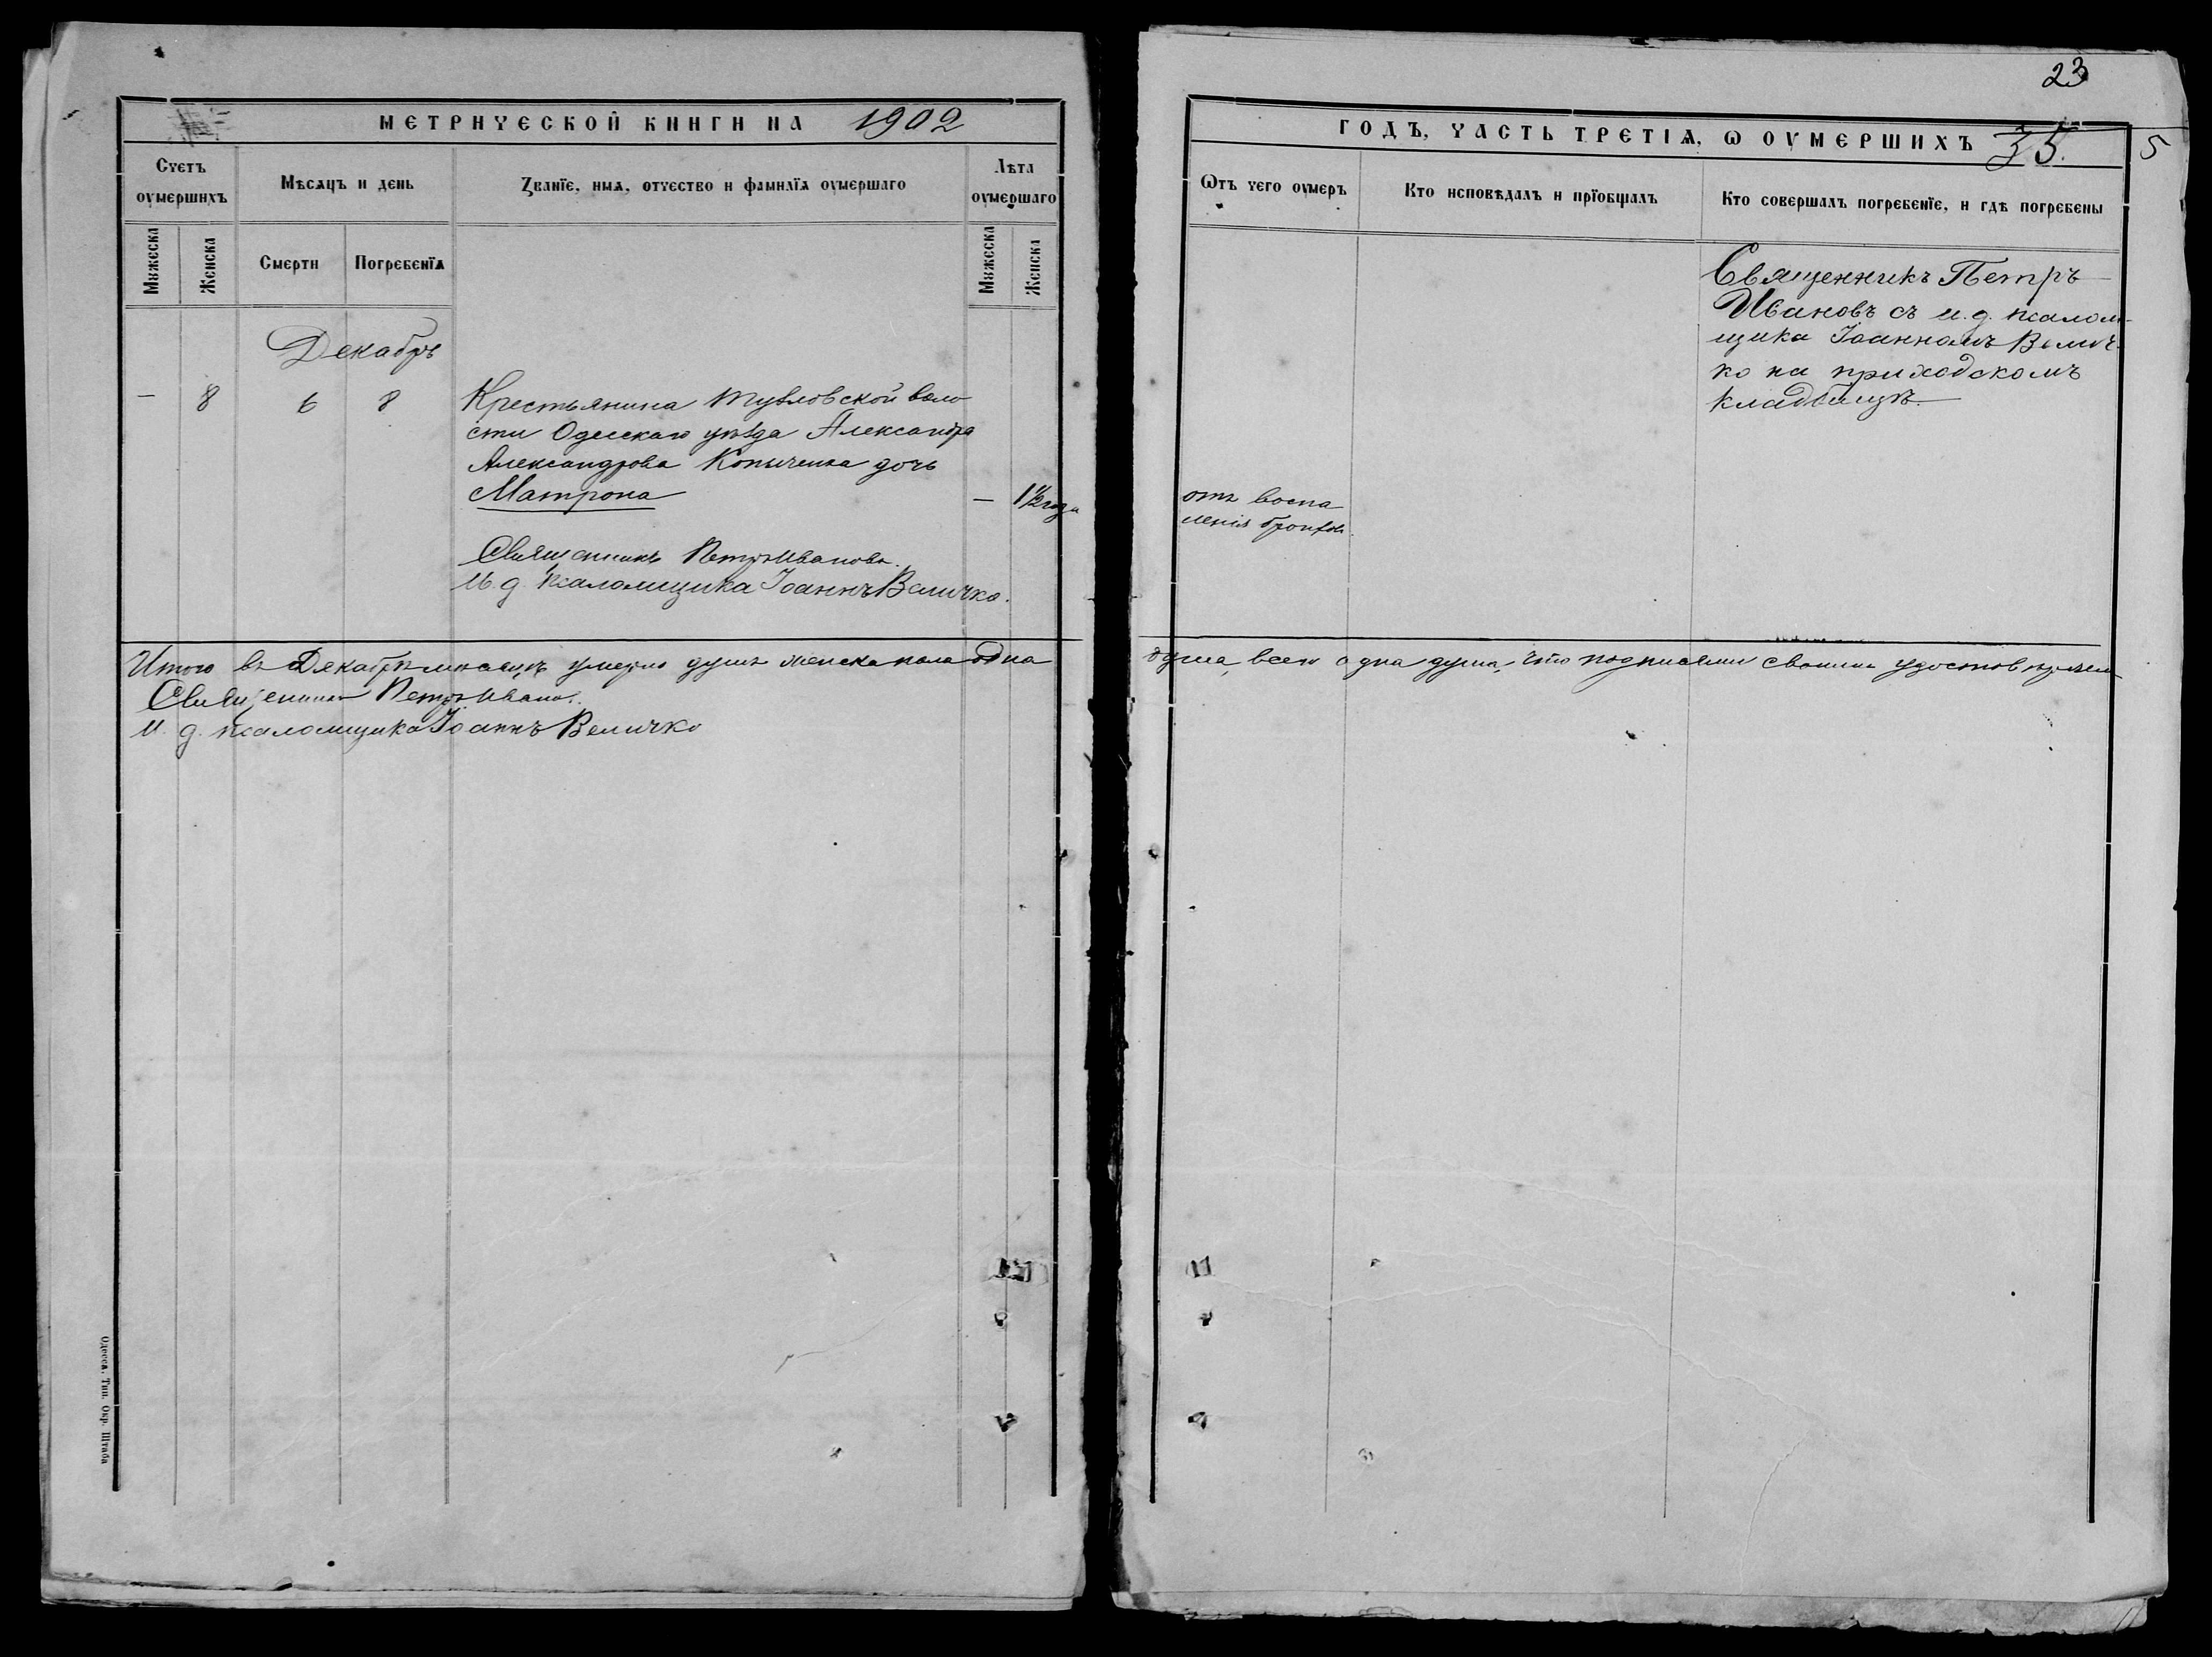 МЕТРИЧЕСКОЙ КНИГИ НА 1902
Счетъ оумершихъ
Мѣсяцъ и день
Званїе, имя, отчество и фамилїя оумершаго
Лѣта оумершаго
Мужеска
Женска
Смерти
Погребенїя
Мужеска
Женска
Декабрь
— 8 6 8 Крестьянина Тузловской воло
сти Одесскаго уѣзда Александра
Александрова Копыченка дочь
Матрона — 1½ года
Священникъ Петръ Ивановъ.
И. д. псаломщика Іоаннъ Величко.
Итого въ Декабрѣ мѣсяцѣ умерло душъ женска пола одна
Священникъ Петръ Ивановъ.
И. д. псаломщика Іоаннъ Величко
Одесса. Тип. Окр. Штаба
23
ГОДЪ, ЧАСТЬ ТРЕТІЯ, Ѡ ОУМЕРШИХЪ 35.
5
Ѿтъ чего оумеръ
Кто исповѣдалъ и прїобщалъ
Кто совершалъ погребенїе, и гдѣ погребены
Священникъ Петръ
Ивановъ съ и. д. псалом-
щика Іоанномъ Велич-
ко на приходскомъ
кладбищѣ.
отъ воспа
ленія бронховъ.
душа, всего одна душа, что подписями своими удостовѣряемъ